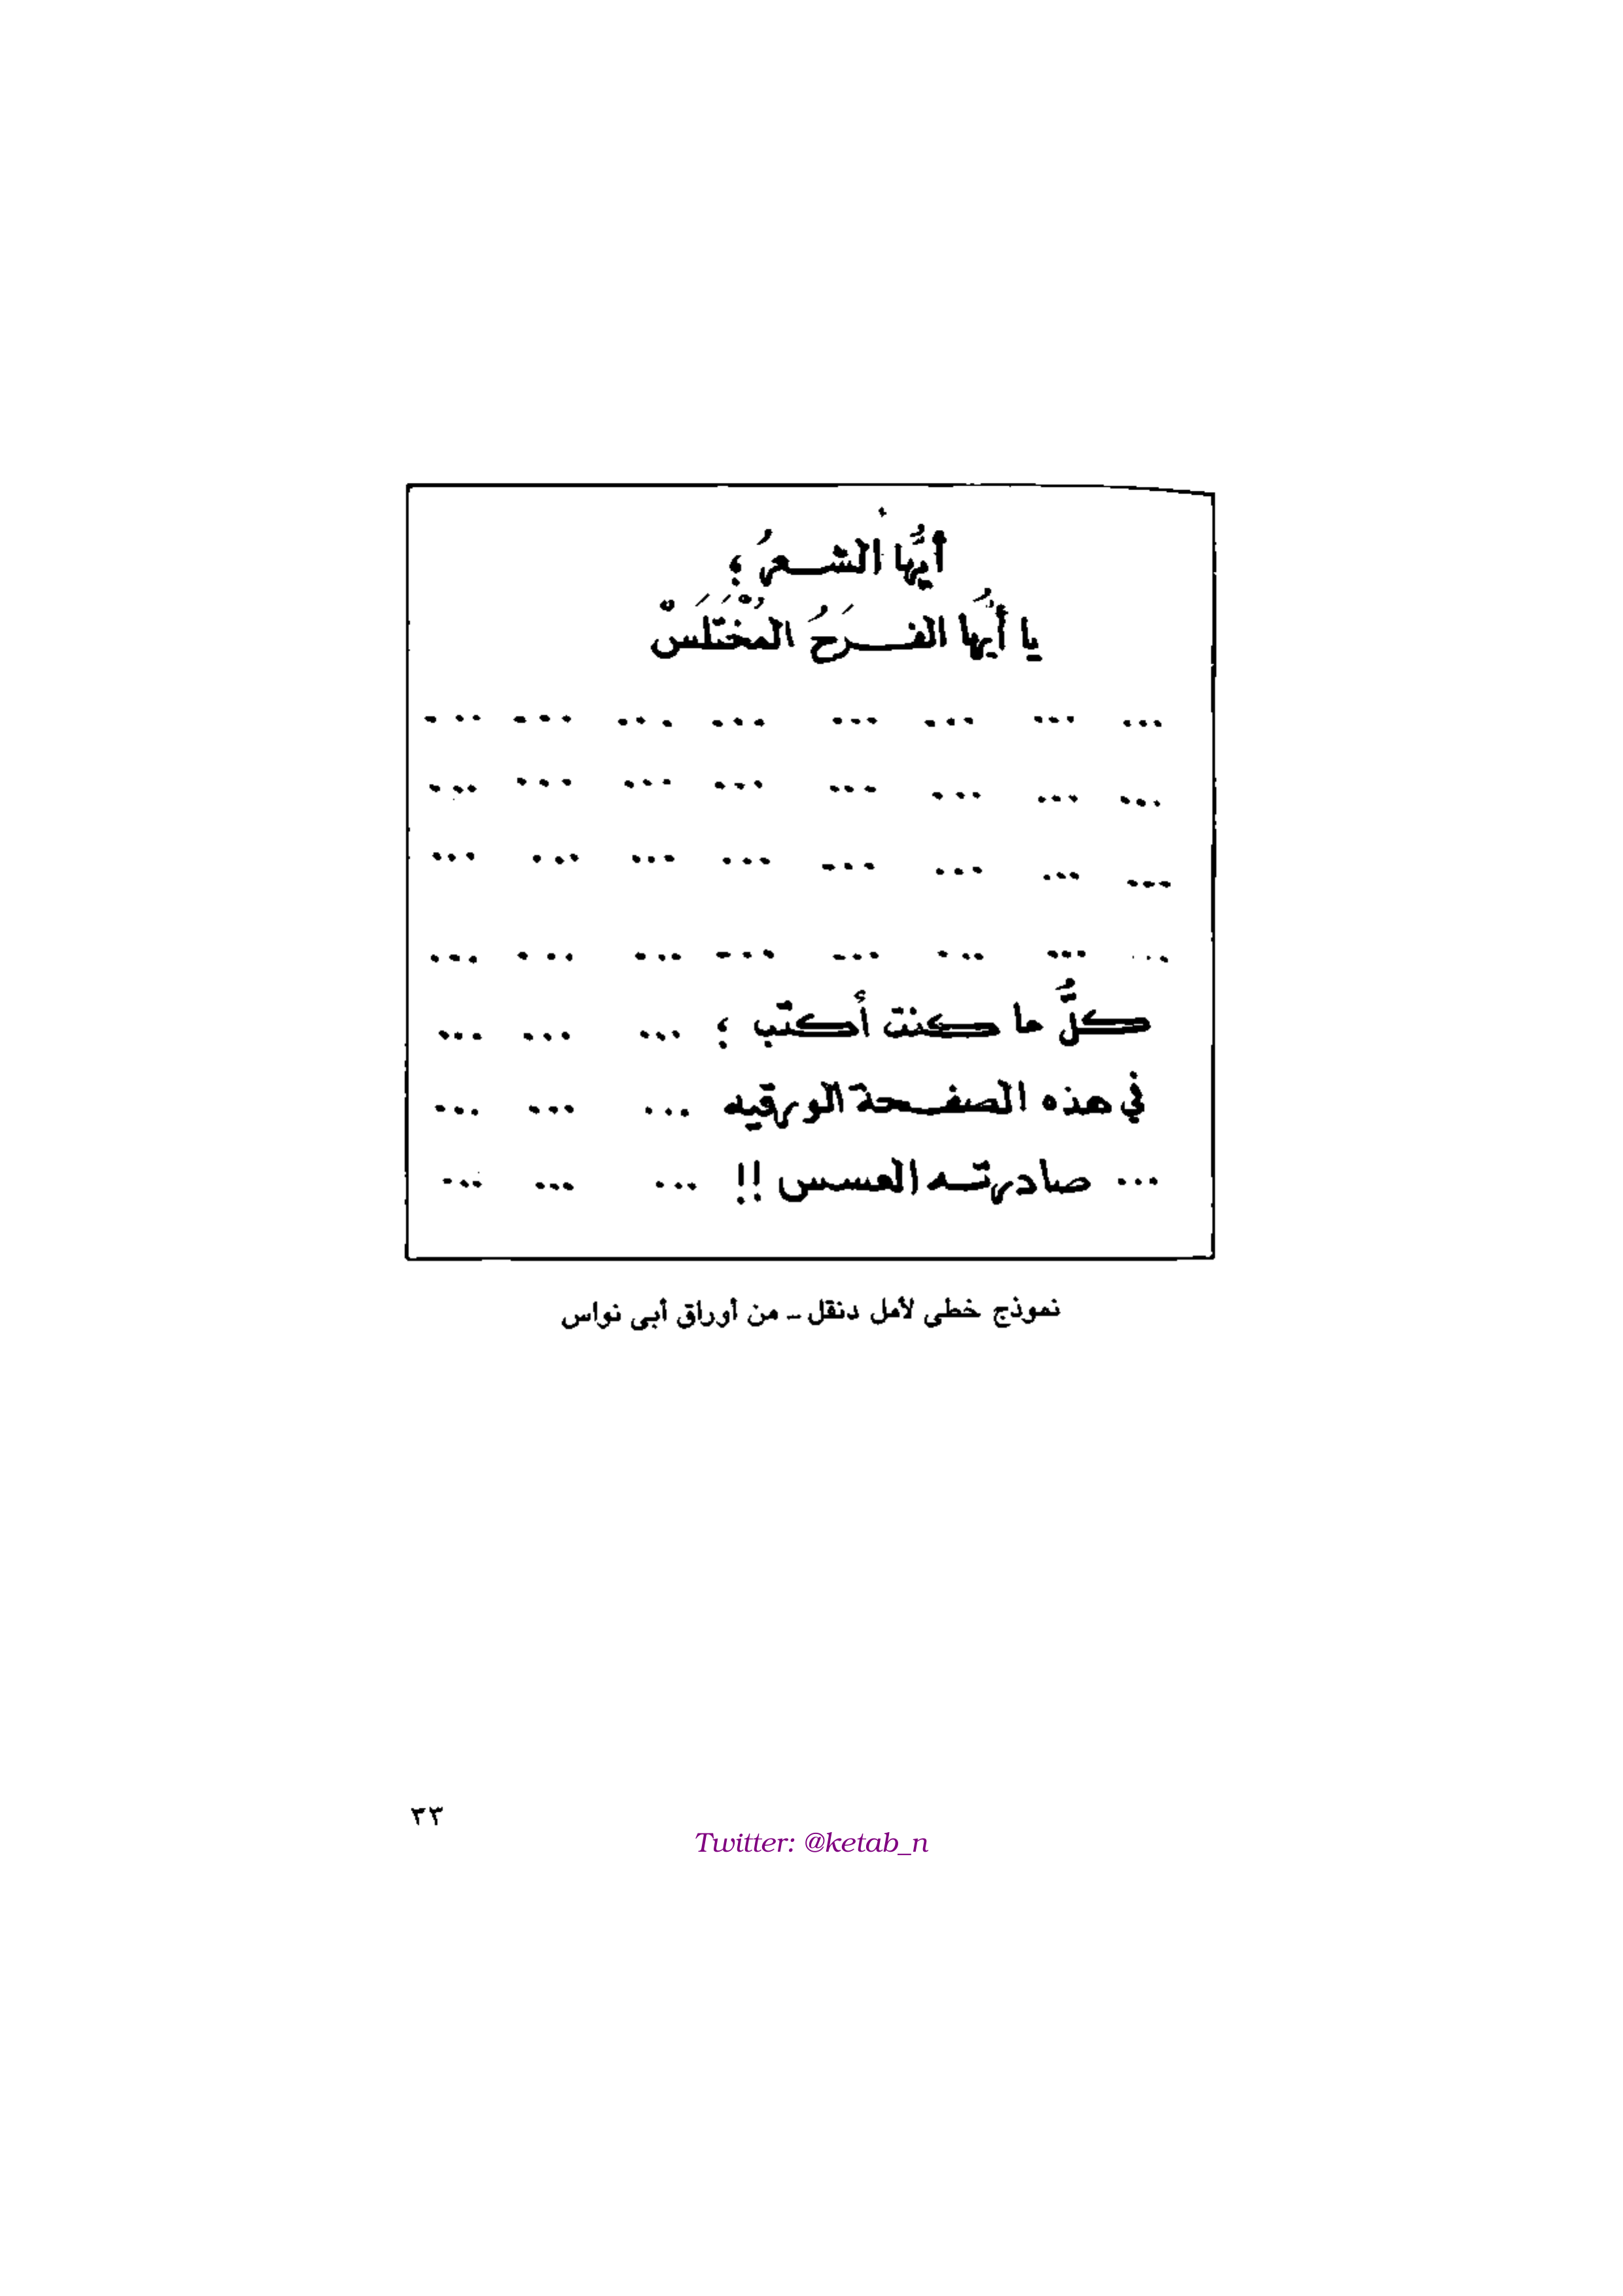 أيُّها الشعرُ؛
يا أيُّها الفَرَحُ المُخْتَلَسْ
... ... ... ... ... ... ... ...
... ... ... ... ... ... ... ...
... ... ... ... ... ... ... ...
.. ... ... ... ... ... ... ...
كلُّ ما كنت أكتب؛ ... ... ...
في هذه الصفحة الورقيه ... ... ...
... صادرته العسس !! ... ... ...
نموذج خطى لأمل دنقل - من أوراق أبى نواس
٣٣
Twitter: @ketab_n